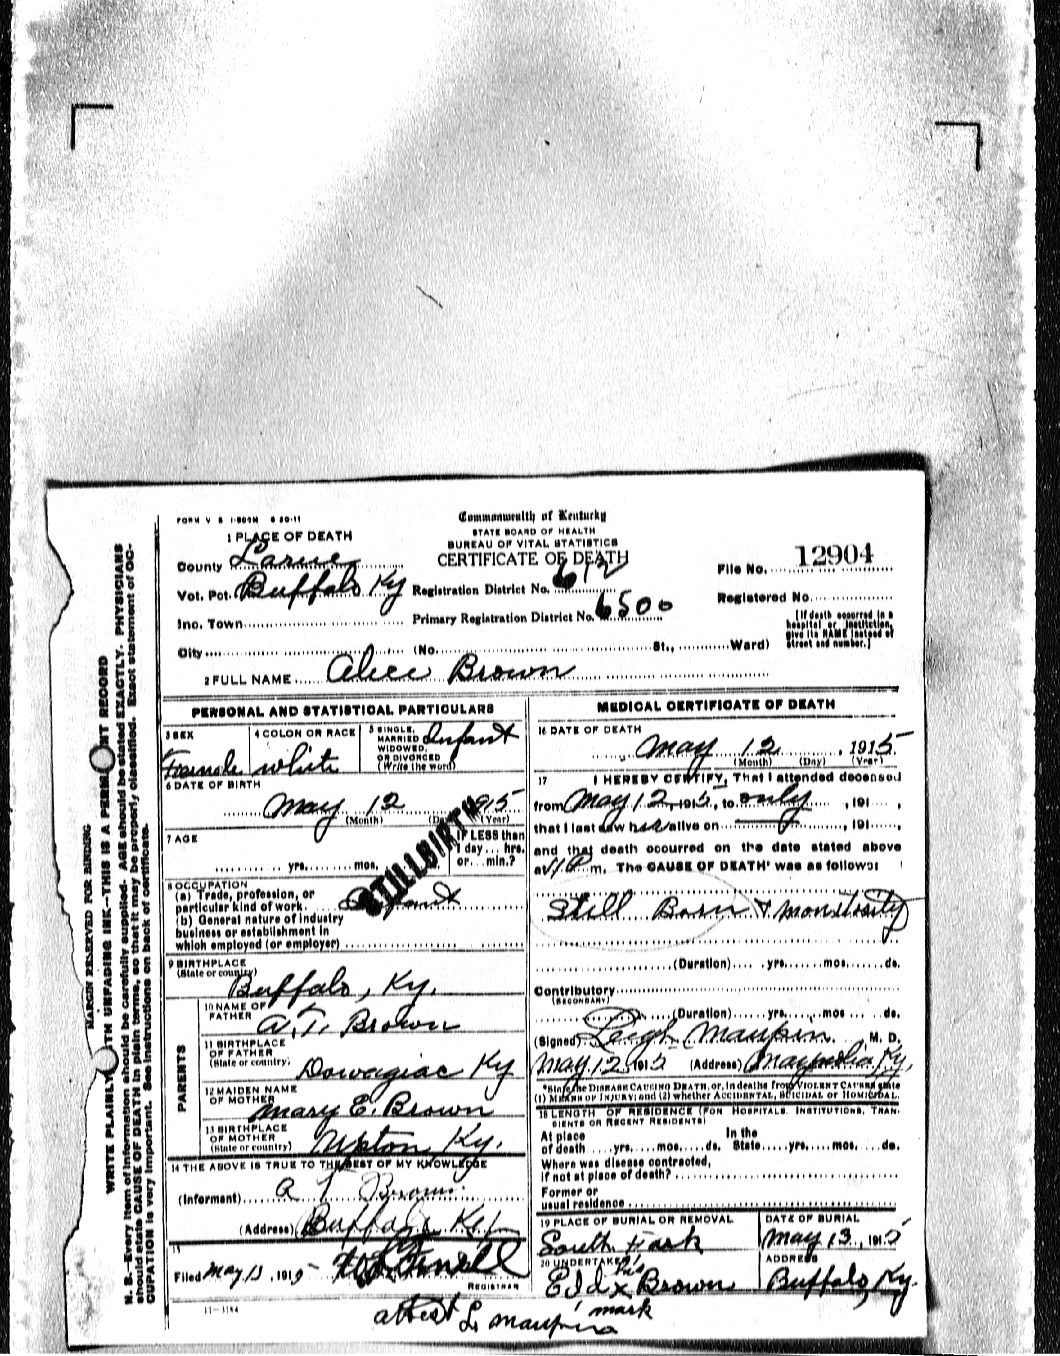 FORM V S 1-500M 6 20-11
Commonwealth of Kentucky
STATE BOARD OF HEALTH
BUREAU OF VITAL STATISTICS
CERTIFICATE OF DEATH
1 PLACE OF DEATH
County Larue
Vot. Pct. Buffalo Ky
Inc. Town
City (No. St., Ward)
Registration District No. 612
Primary Registration District No. 6500
File No. 12904
Registered No.
[If death occurred in a
hospital or institution,
give its NAME instead of
street and number.]
2 FULL NAME Alice Brown
PERSONAL AND STATISTICAL PARTICULARS
3 SEX
Female
4 COLOR OR RACE
white
5 SINGLE,
MARRIED
WIDOWED,
OR DIVORCED
(Write the word)
Infant
6 DATE OF BIRTH
May 12 1915
(Month) (Day) (Year)
7 AGE
yrs. mos.
IF LESS than
1 day hrs.
or min.?
STILLBIRTH
8 OCCUPATION
(a) Trade, profession, or
particular kind of work Infant
(b) General nature of industry
business or establishment in
which employed (or employer)
9 BIRTHPLACE
(State or country)
Buffalo, Ky.
PARENTS
10 NAME OF
FATHER A.T. Brown
11 BIRTHPLACE
OF FATHER
(State or country) Dowagiac Ky
12 MAIDEN NAME
OF MOTHER Mary E. Brown
13 BIRTHPLACE
OF MOTHER
(State or country) Upton Ky.
14 THE ABOVE IS TRUE TO THE BEST OF MY KNOWLEDGE
(Informant) A T Brown
(Address) Buffalo Ky
15
Filed May 13, 1915
REGISTRAR
11-3184
MEDICAL CERTIFICATE OF DEATH
16 DATE OF DEATH
May 12, 1915
(Month) (Day) (Year)
17 I HEREBY CERTIFY, That I attended deceased
from May 12, 1915, to only, 191 ,
that I last saw her alive on , 191 ,
and that death occurred on the date stated above
at m. The CAUSE OF DEATH* was as follows:
Still Born & monstrosity
(Duration) yrs. mos. ds.
Contributory
(SECONDARY)
(Duration) yrs. mos ds.
(Signed) Leigh Maupin M. D.
May 12 1915 (Address) Magnolia Ky.
*State the DISEASE CAUSING DEATH, or, in deaths from VIOLENT CAUSES state
(1) MEANS OF INJURY; and (2) whether ACCIDENTAL, SUICIDAL or HOMICIDAL.
18 LENGTH OF RESIDENCE (FOR HOSPITALS, INSTITUTIONS, TRAN-
SIENTS OR RECENT RESIDENTS)
At place In the
of death yrs. mos. ds. State yrs. mos. ds.
Where was disease contracted,
if not at place of death?
Former or
usual residence
19 PLACE OF BURIAL OR REMOVAL
South Fork
DATE OF BURIAL
May 13, 1915
20 UNDERTAKER
his
Ed x Brown
mark
ADDRESS
Buffalo, Ky.
attest L. Maupin
MARGIN RESERVED FOR BINDING
WRITE PLAINLY WITH UNFADING INK—THIS IS A PERMANENT RECORD
N. B.—Every item of information should be carefully supplied. AGE should be stated EXACTLY. PHYSICIANS
should state CAUSE OF DEATH in plain terms, so that it may be properly classified. Exact statement of OC-
CUPATION is very important. See instructions on back of certificate.